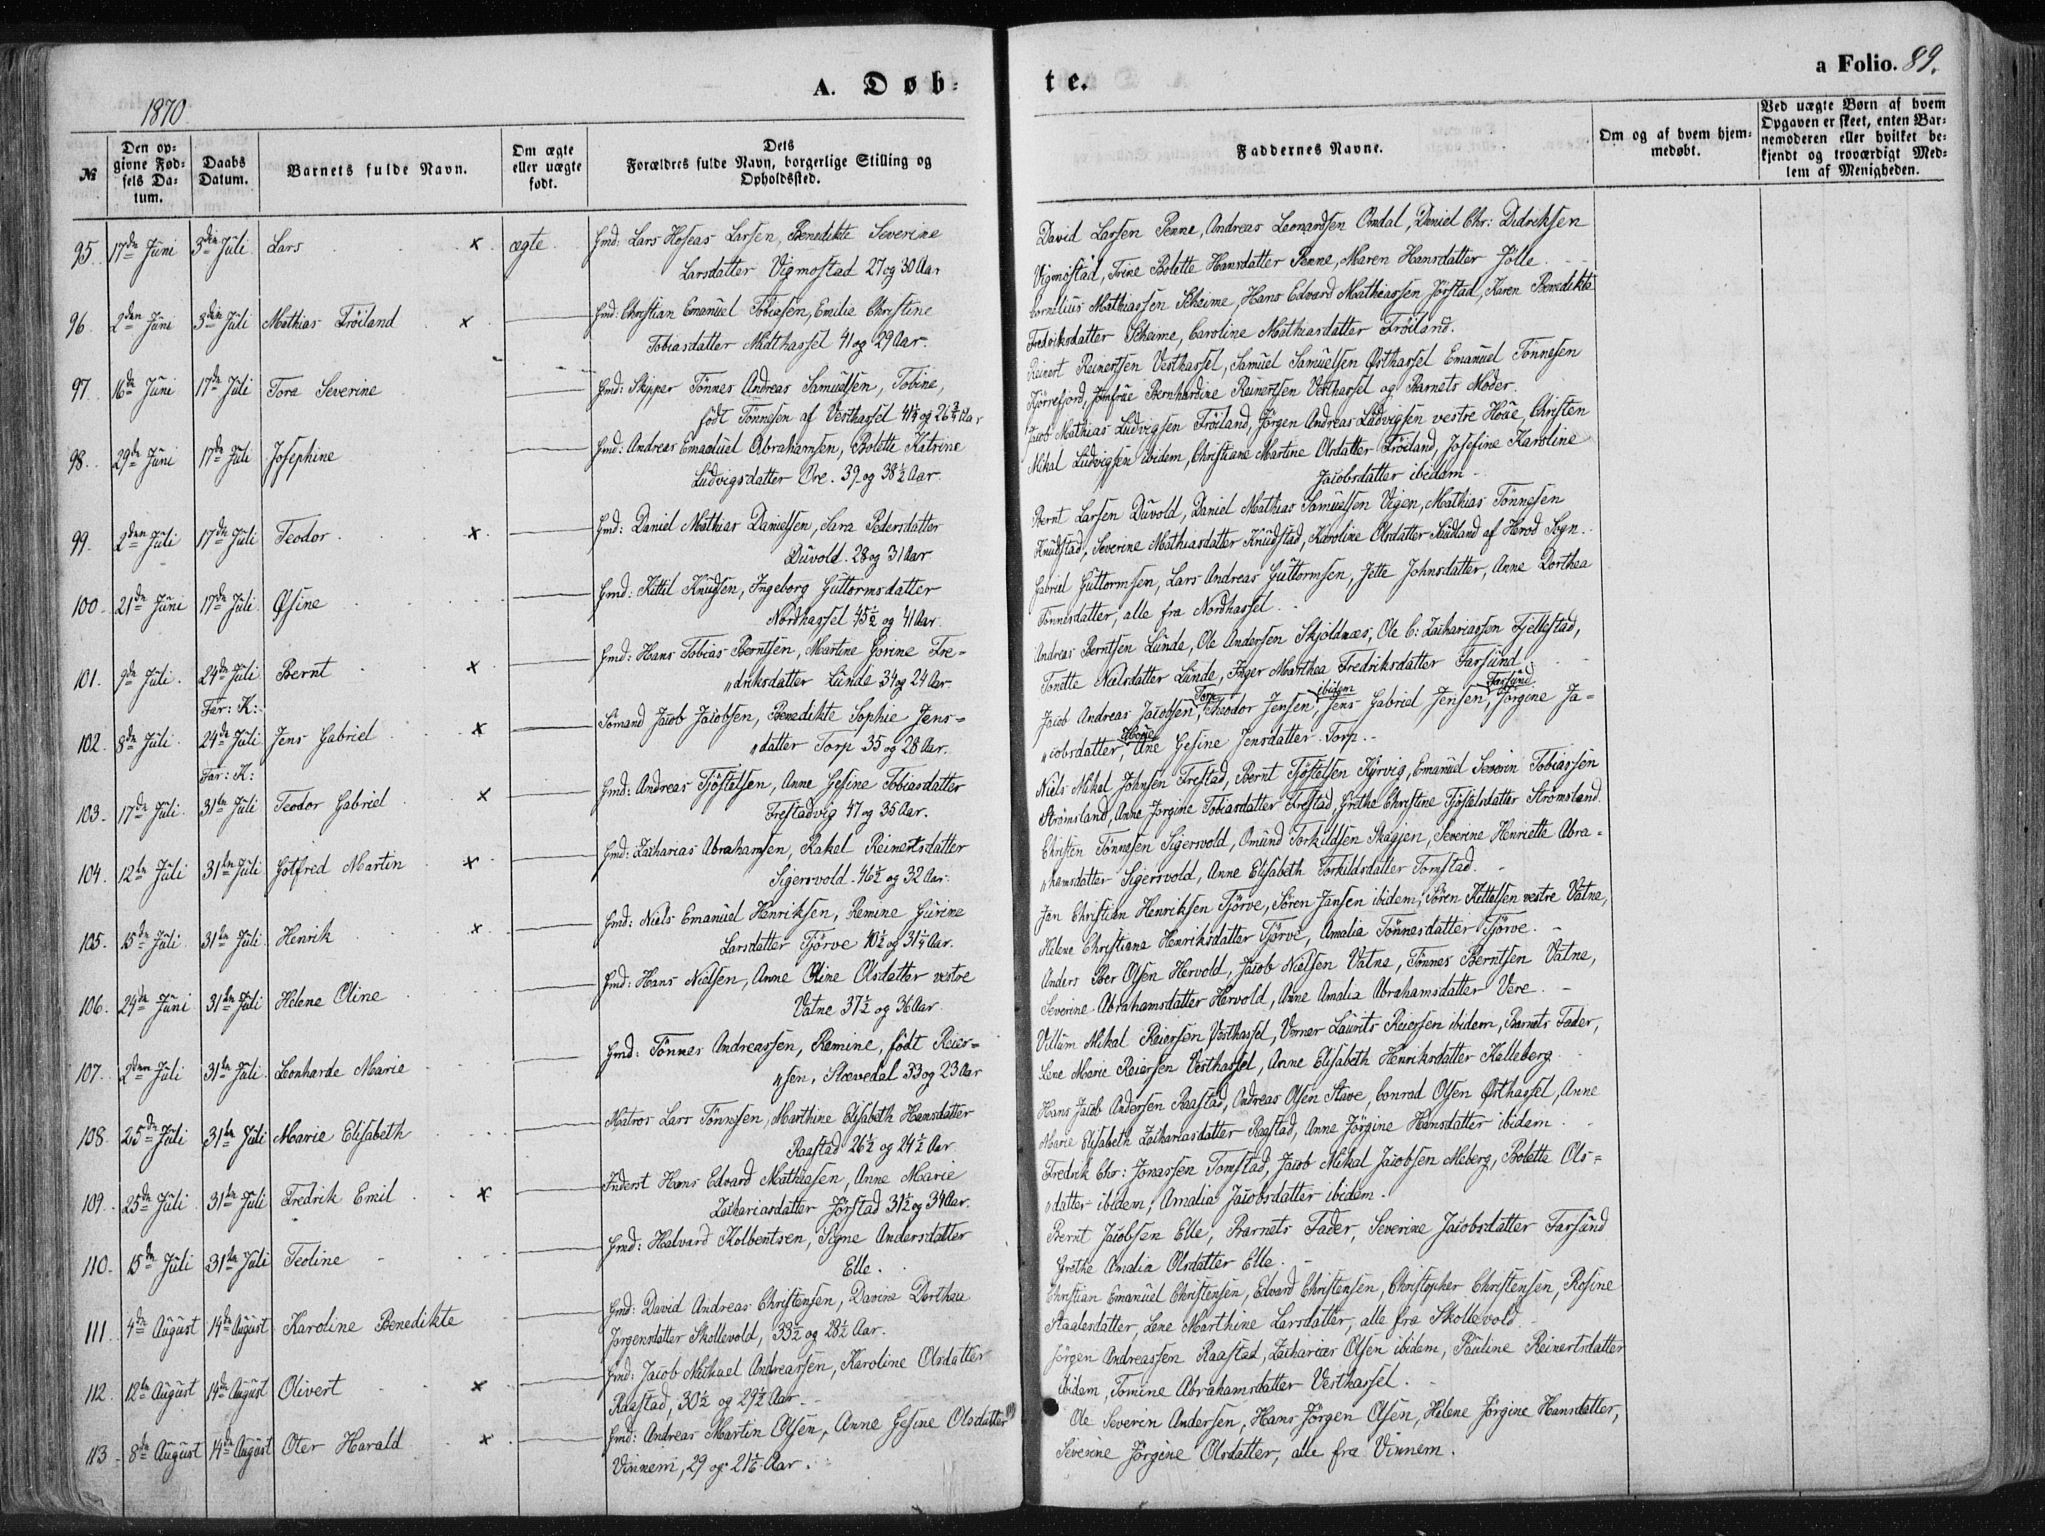 A. Døb-
te.
a Folio. 89.
1870.
№
Den op-
givne Fød-
sels Da-
tum.
Daabs
Datum.
Barnets fulde Navn.
Om ægte
eller uægte
født.
Dets
Forældres fulde Navn, borgerlige Stilling og
Opholdssted.
Faddernes Navne.
Om og af hvem hjem-
medøbt.
Ved uægte Børn af hvem
Opgaven er skeet, enten Bar-
nemoderen eller hvilket be-
kjendt og troværdigt Med-
lem af Menigheden.
95. 17de Juni 3die Juli Lars x ægte Gmd: Lars Hoseas Larsen, Benedikte Severine
Larsdatter Vigmostad 27 og 30 Aar
David Larsen Penne, Andreas Leonardsen Omdal, Daniel Chr: Didriksen
Vigmostad, Trine Bolette Hansdatter Penne, Maren Hansdatter Jølle.
96. 2den Juni 3die Juli Mathias Frøiland x Gmd: Christian Emanuel Tobiasen, Emilie Christine
Tobiasdatter Midthassel 41 og 29 Aar.
Cornelius Mathiassen Skeime, Hans Edvard Mathiassen Jørstad, Karen Benedikte
Fredriksdatter Skeime, Caroline Mathiasdatter Frøiland.
97. 16de Juni 17de Juli Tora Severine Gmd: Skipper Tønnes Andreas Samuelsen, Tobine,
født Tønnesen af Vesthassel 41¼ og 26¾ Aar
Reinert Reinertsen Vesthassel, Samuel Samuelsen Østhassel Emanuel Tønnesen
Kjørrefjord, Jomfrue Bernhardine Reinertsen Vesthassel og Barnets Moder.
98. 29de Juni 17de Juli Josephine Gmd: Andreas Emanuel Abrahamsen, Bolette Katrine
Ludvigsdatter Ore. 39 og 38½ Aar.
Jacob Mathias Ludvigsen Frøiland, Jørgen Andreas Ludvigsen vestre Houe, Christen
Mikal Ludvigsen ibidem, Christiane Martine Olsdatter Frøiland, Josefine Karoline
Jacobsdatter ibidem
99. 2den Juli 17de Juli Teodor x Gmd: Daniel Mathias Danielsen, Sara Pedersdatter
Duvold. 28 og 31 Aar
Bernt Larsen Duvold, Daniel Mathias Samuelsen Vigen, Mathias Tønnesen
Knudstad, Severine Mathiasdatter Knudstad, Karoline Olsdatter Sudland af Herod Sogn.
100. 21de Juni 17de Juli Øsine Gmd: Kittil Knudsen, Ingeborg Guttormsdatter
Nordhassel 45½ og 41 Aar.
Gabriel Guttormsen, Lars Andreas Guttormsen, Jette Johnsdatter, Anne Dorthea
Tønnesdatter, alle fra Nordhassel.
101. 9de Juli 24de Juli Bernt x Gmd: Hans Tobias Berntsen, Martine Gorine Fre-
Far: K:
„driksdatter Lunde 34 og 24 Aar.
Andreas Berntsen Lunde, Ole Andersen Skjoldnæs, Ole C: Zachariassen Fjellestad,
Tonette Nielsdatter Lunde, Inger Marthea Fredriksdatter Farsund.
102. 8de Juli 24de Juli Jens Gabriel x Sømand Jacob Jacobsen, Benedikte Sophie Jens-
Far: K:
„datter Torp 35 og 28 Aar.
Jacob Andreas Jacobsen Torp, Theodor Jensen ibidem, Jens Gabriel Jensen Farsund, Jørgine Ja-
„cobsdatter Houe, Ane Gesine Jensdatter Torp.
103. 17de Juli 31te Juli Teodor Gabriel x Gmd: Andreas Tjøstelsen, Anne Gesine Tobiasdatter
Frestadvig 47 og 35 Aar.
Niels Mikal Johnsen Frestad, Bernt Tjøstelsen Kjrvig, Emanuel Severin Tobiassen
Strømsland, Anne Jørgine Tobiasdatter Frestad, Grethe Christine Tjøstelsdatter Strømsland.
104. 12te Juli 31te Juli Gotfred Martin x Gmd: Zacharias Abrahamsen, Rakel Reinertsdatter
Sigersvold 46½ og 32 Aar.
Christen Tønnesen Sigersvold, Omund Torkildsen Skagjen, Severine Henriette Abra-
„hamsdatter Sigersvold, Anne Elisabeth Torkildsdatter Tomstad.
105. 15de Juli 31te Juli Henrik x Gmd: Niels Emanuel Henriksen, Remine Gurine
Larsdatter Tjørve 40½ og 31¼ Aar.
Jan Christian Henriksen Tjørve, Søren Jansen ibidem, Søren Kittelsen vestre Vatne,
Helene Christiane Henriksdatter Tjørve, Amalia Tønnesdatter Tjørve.
106. 24de Juni 31te Juli Helene Oline Gmd: Hans Nielsen, Anne Oline Olsdatter vestre
Vatne 37½ og 36 Aar.
Anders Ber Olsen Hervold, Jacob Nielsen Vatne, Tønnes Berntsen Vatne,
Severine Abrahamsdatter Hervold, Anne Amalia Abrahamsdatter Vere.
107. 2den Juli 31te Juli Leonharde Marie Gmd: Tønnes Andreassen, Remine, født Reier-
„sen, Slævedal 33 og 23 Aar
Villum Mikal Reiersen Vesthassel, Verner Laurits Reiersen ibidem, Barnets Fader,
Lene Marie Reiersen Vesthassel, Anne Elisabeth Henriksdatter Kalleberg.
108. 25de Juli 31te Juli Marie Elisabeth Matros Lars Tønnesen, Marthine Elisabeth Hansdatter
Raastad 26½ og 24½ Aar.
Hans Jacob Andersen Raastad, Andreas Olsen Stave, Conrad Olsen Østhassel, Anne
Marie Elisabeth Zachariasdatter Raastad, Anne Jørgine Hansdatter ibidem.
109. 25de Juli 31te Juli Fredrik Emil x Inderst Hans Edvard Mathiasen, Anne Marie
Zachariasdatter Jørstad 31½ og 34 Aar.
Fredrik Chr: Jonassen Tomstad, Jacob Mikal Jacobsen Meberg, Bolette Ols-
„datter ibidem, Amalia Jacobsdatter ibidem.
110. 15de Juli 31te Juli Teoline Gmd: Halvard Kolbentsen, Signe Andersdatter
Elle.
Bernt Jacobsen Elle, Barnets Fader, Severine Jacobsdatter Farsund
Grethe Amalia Olsdatter Elle.
111. 4de August 14de August Karoline Benedikte Gmd: David Andreas Christensen, Davine Dorthea
Jørgensdatter Skollevold, 33½ og 28½ Aar.
Christian Emanuel Christensen, Edvard Christensen, Christopher Christensen, Rosine
Staalesdatter, Lene Marthine Larsdatter, alle fra Skollevold.
112. 12te August 14de August Olivert x Gmd: Jacob Michael Andreassen, Karoline Olsdatter
Raastad, 30½ og 29½ Aar.
Jørgen Andreassen Raastad, Zacharias Olsen ibidem, Pauline Reinertsdatter
ibidem, Tomine Abrahamsdatter Vesthassel.
113. 8de August 14de August Oter Harald x Gmd: Andreas Martin Olsen, Anne Gesine Olsdatter
Vinnem, 29 og 21⅙ Aar.
Ole Severin Andersen, Hans Jørgen Olsen, Helene Jørgine Hansdatter,
Severine Jørgine Olsdatter, alle fra Vinnem.